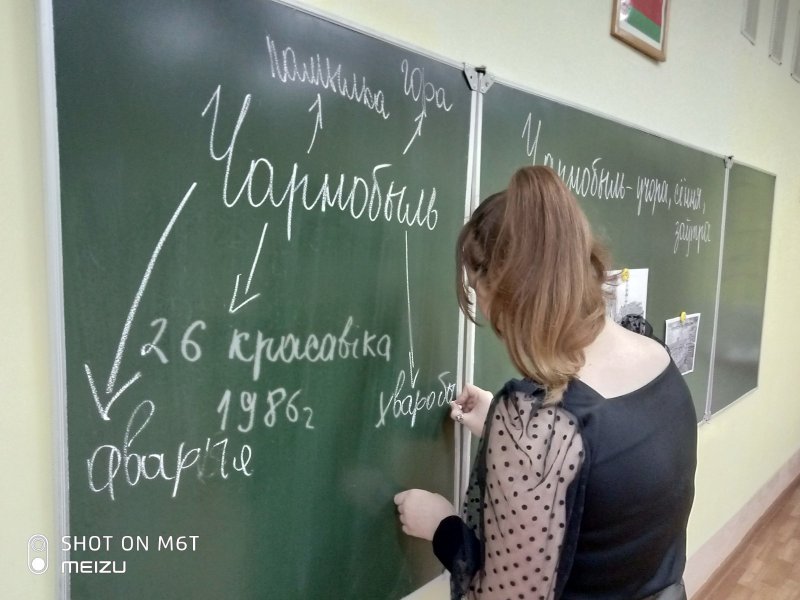 памылка гора
Чарнобыль
26 красавіка
1986г
хваробы
аварыя
Чарнобыль - учора, сёння,
заўтра
SHOT ON M6T
MEIZU